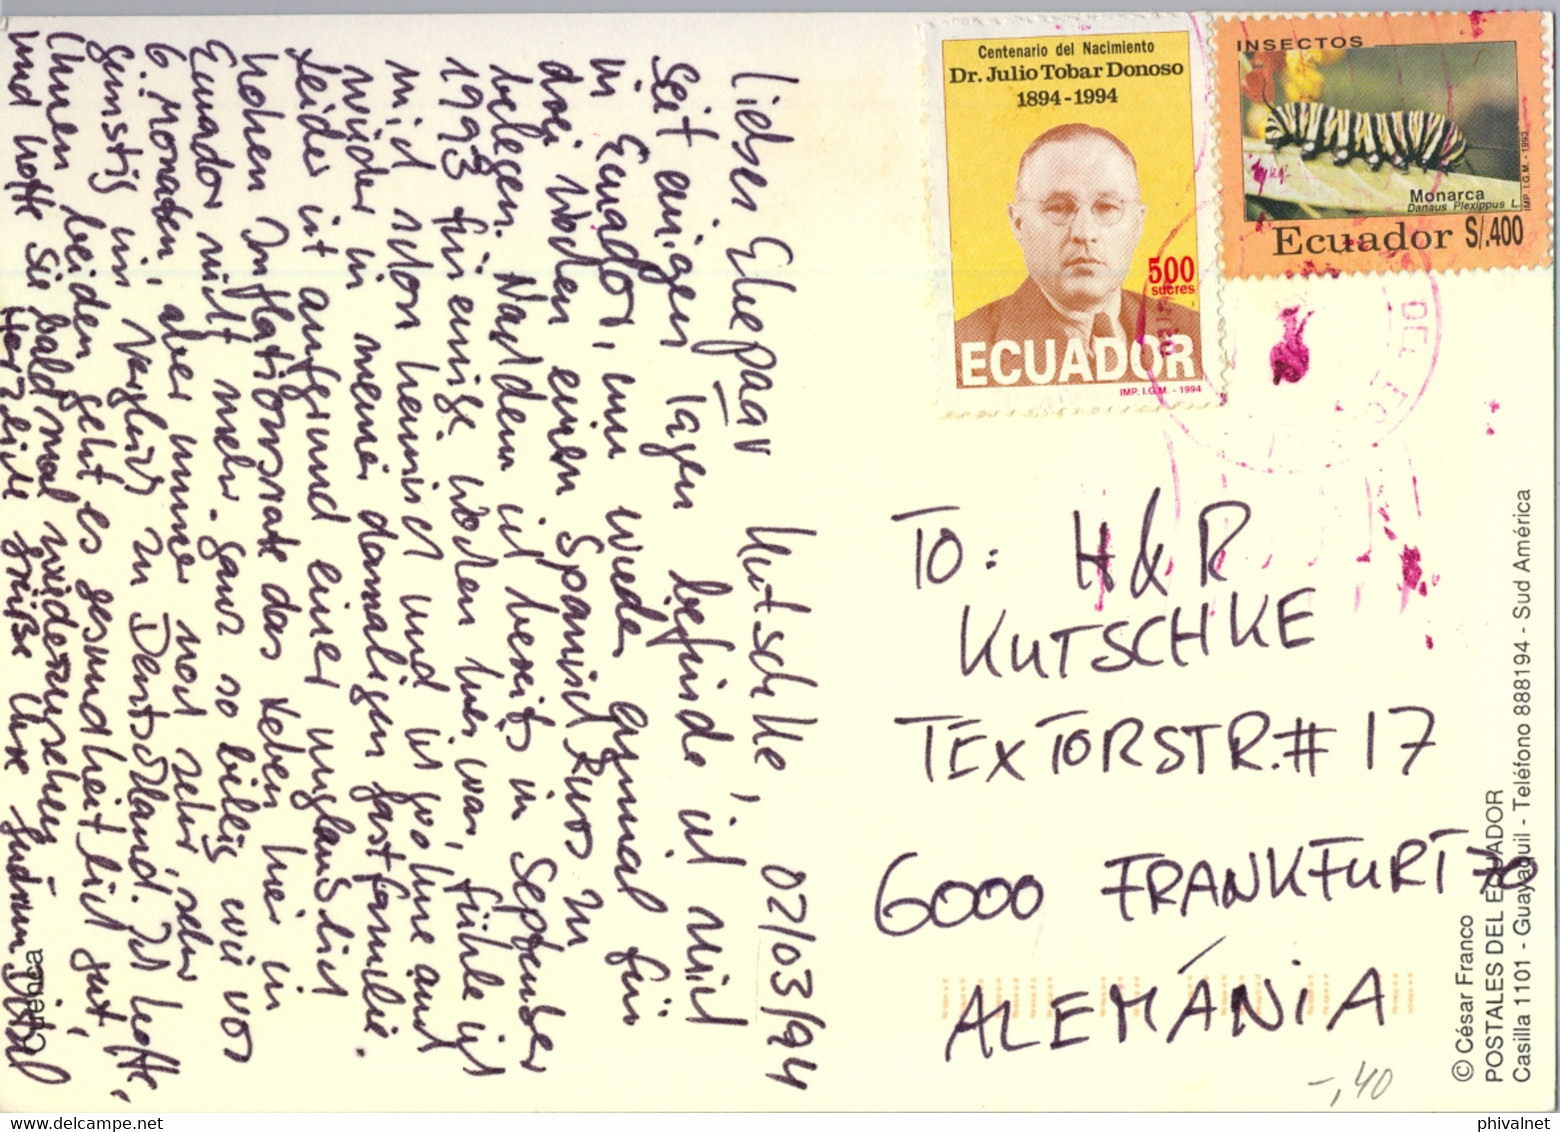 Liebes Ehepaar Kutschke, 02/03/94
seit einigen Tagen befinde ich mich
in Ecuador, um wieder einmal für
drei Wochen einen Spanisch Kurs zu
belegen. Nachdem ich bereits im September
1993 für einige Wochen hier war, fühle ich
mich schon heimisch und ich wohne auch
wieder in meiner damaligen Gastfamilie.
Leider ist aufgrund einer unglaublich
hohen Inflationsrate das Leben hier in
Ecuador nicht mehr ganz so billig wie vor
6 Monaten, aber immer noch sehr, sehr
günstig im Vergleich zu Deutschland. Ich hoffe,
Ihnen beiden geht es gesundheitlich gut,
und hoffe Sie bald mal wiederzusehen
Herzliche Grüße Ihre
Cuenca
Centenario del Nacimiento
Dr. Julio Tobar Donoso
1894-1994
500
sucres
ECUADOR
IMP. I.G.M. - 1994
INSECTOS
Monarca
Danaus Plexippus L.
IMP. I.G.M. - 1993
Ecuador S/.400
DEL
TO: H&R
KUTSCHKE
TEXTORSTR.# 17
6000 FRANKFURT 70
ALEMÁNiA
-,40
© César Franco
POSTALES DEL ECUADOR
Casilla 1101 - Guayaquil - Teléfono 888194 - Sud América
phivalnet